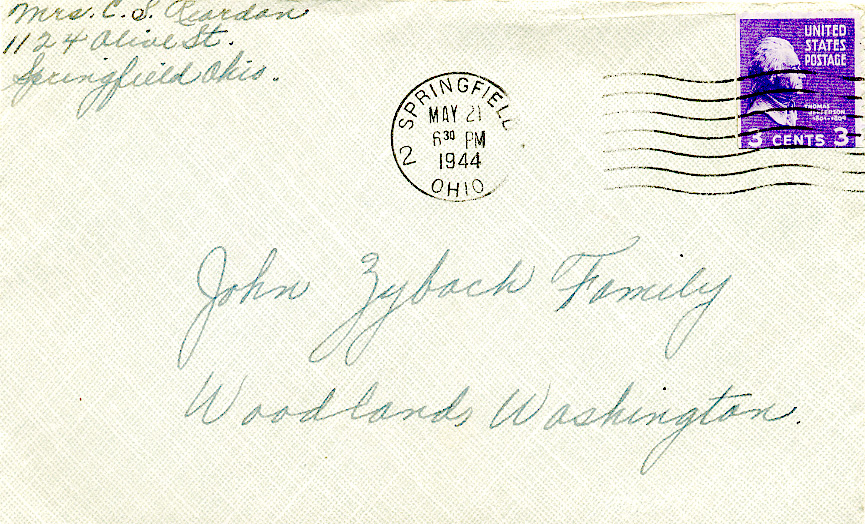 Mrs. C. S. Reardon
1124 Olive St.
Springfield Ohio.
SPRINGFIEL
MAY 21
6 30 PM
1944
2
OHIO
UNITED
STATES
POSTAGE
THOMAS
JEFFERSON
3 CENTS 3
John Zybach Family
Woodlands Washington.